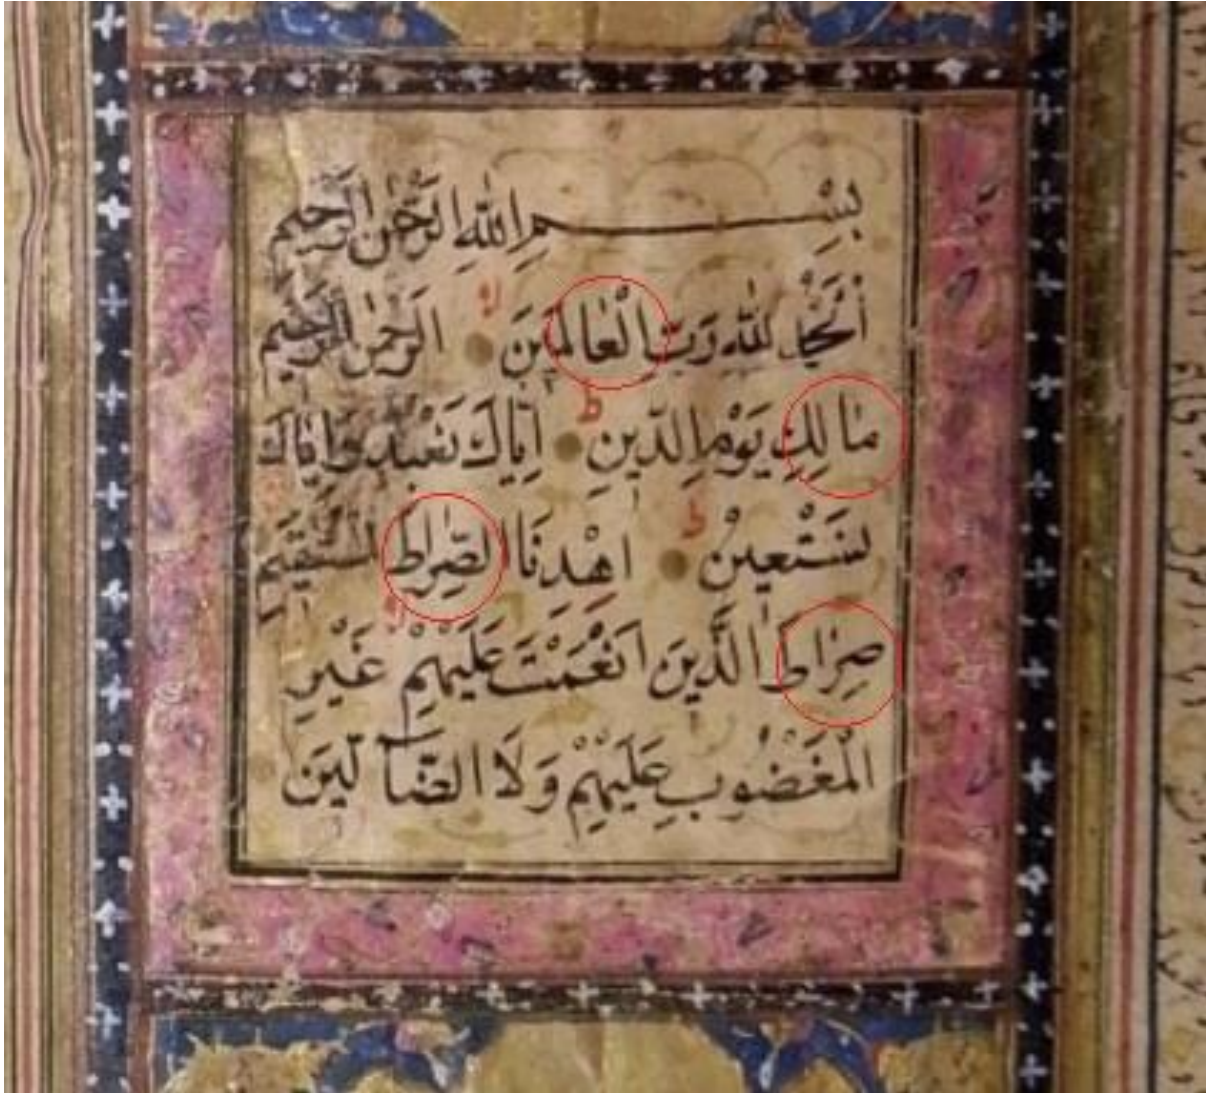 بِسْمِ اللهِ الرَّحْمٰنِ الرَّحِيمِ
اَلْحَمْدُ لِلّٰهِ رَبِّ الْعٰالَمِينَ لا الرَّحْمٰنِ الرَّحِيمِ
مٰالِكِ يَوْمِ الدِّينِ ط اِيّٰاكَ نَعْبُدُ وَاِيّٰاكَ
نَسْتَعِينُ ط اِهْدِنَا الصِّرٰاطَ الْمُسْتَقِيمَ لا
صِرٰاطَ الَّذِينَ اَنْعَمْتَ عَلَيْهِمْ غَيْرِ
الْمَغْضُوبِ عَلَيْهِمْ وَلَا الضَّآلِّينَ